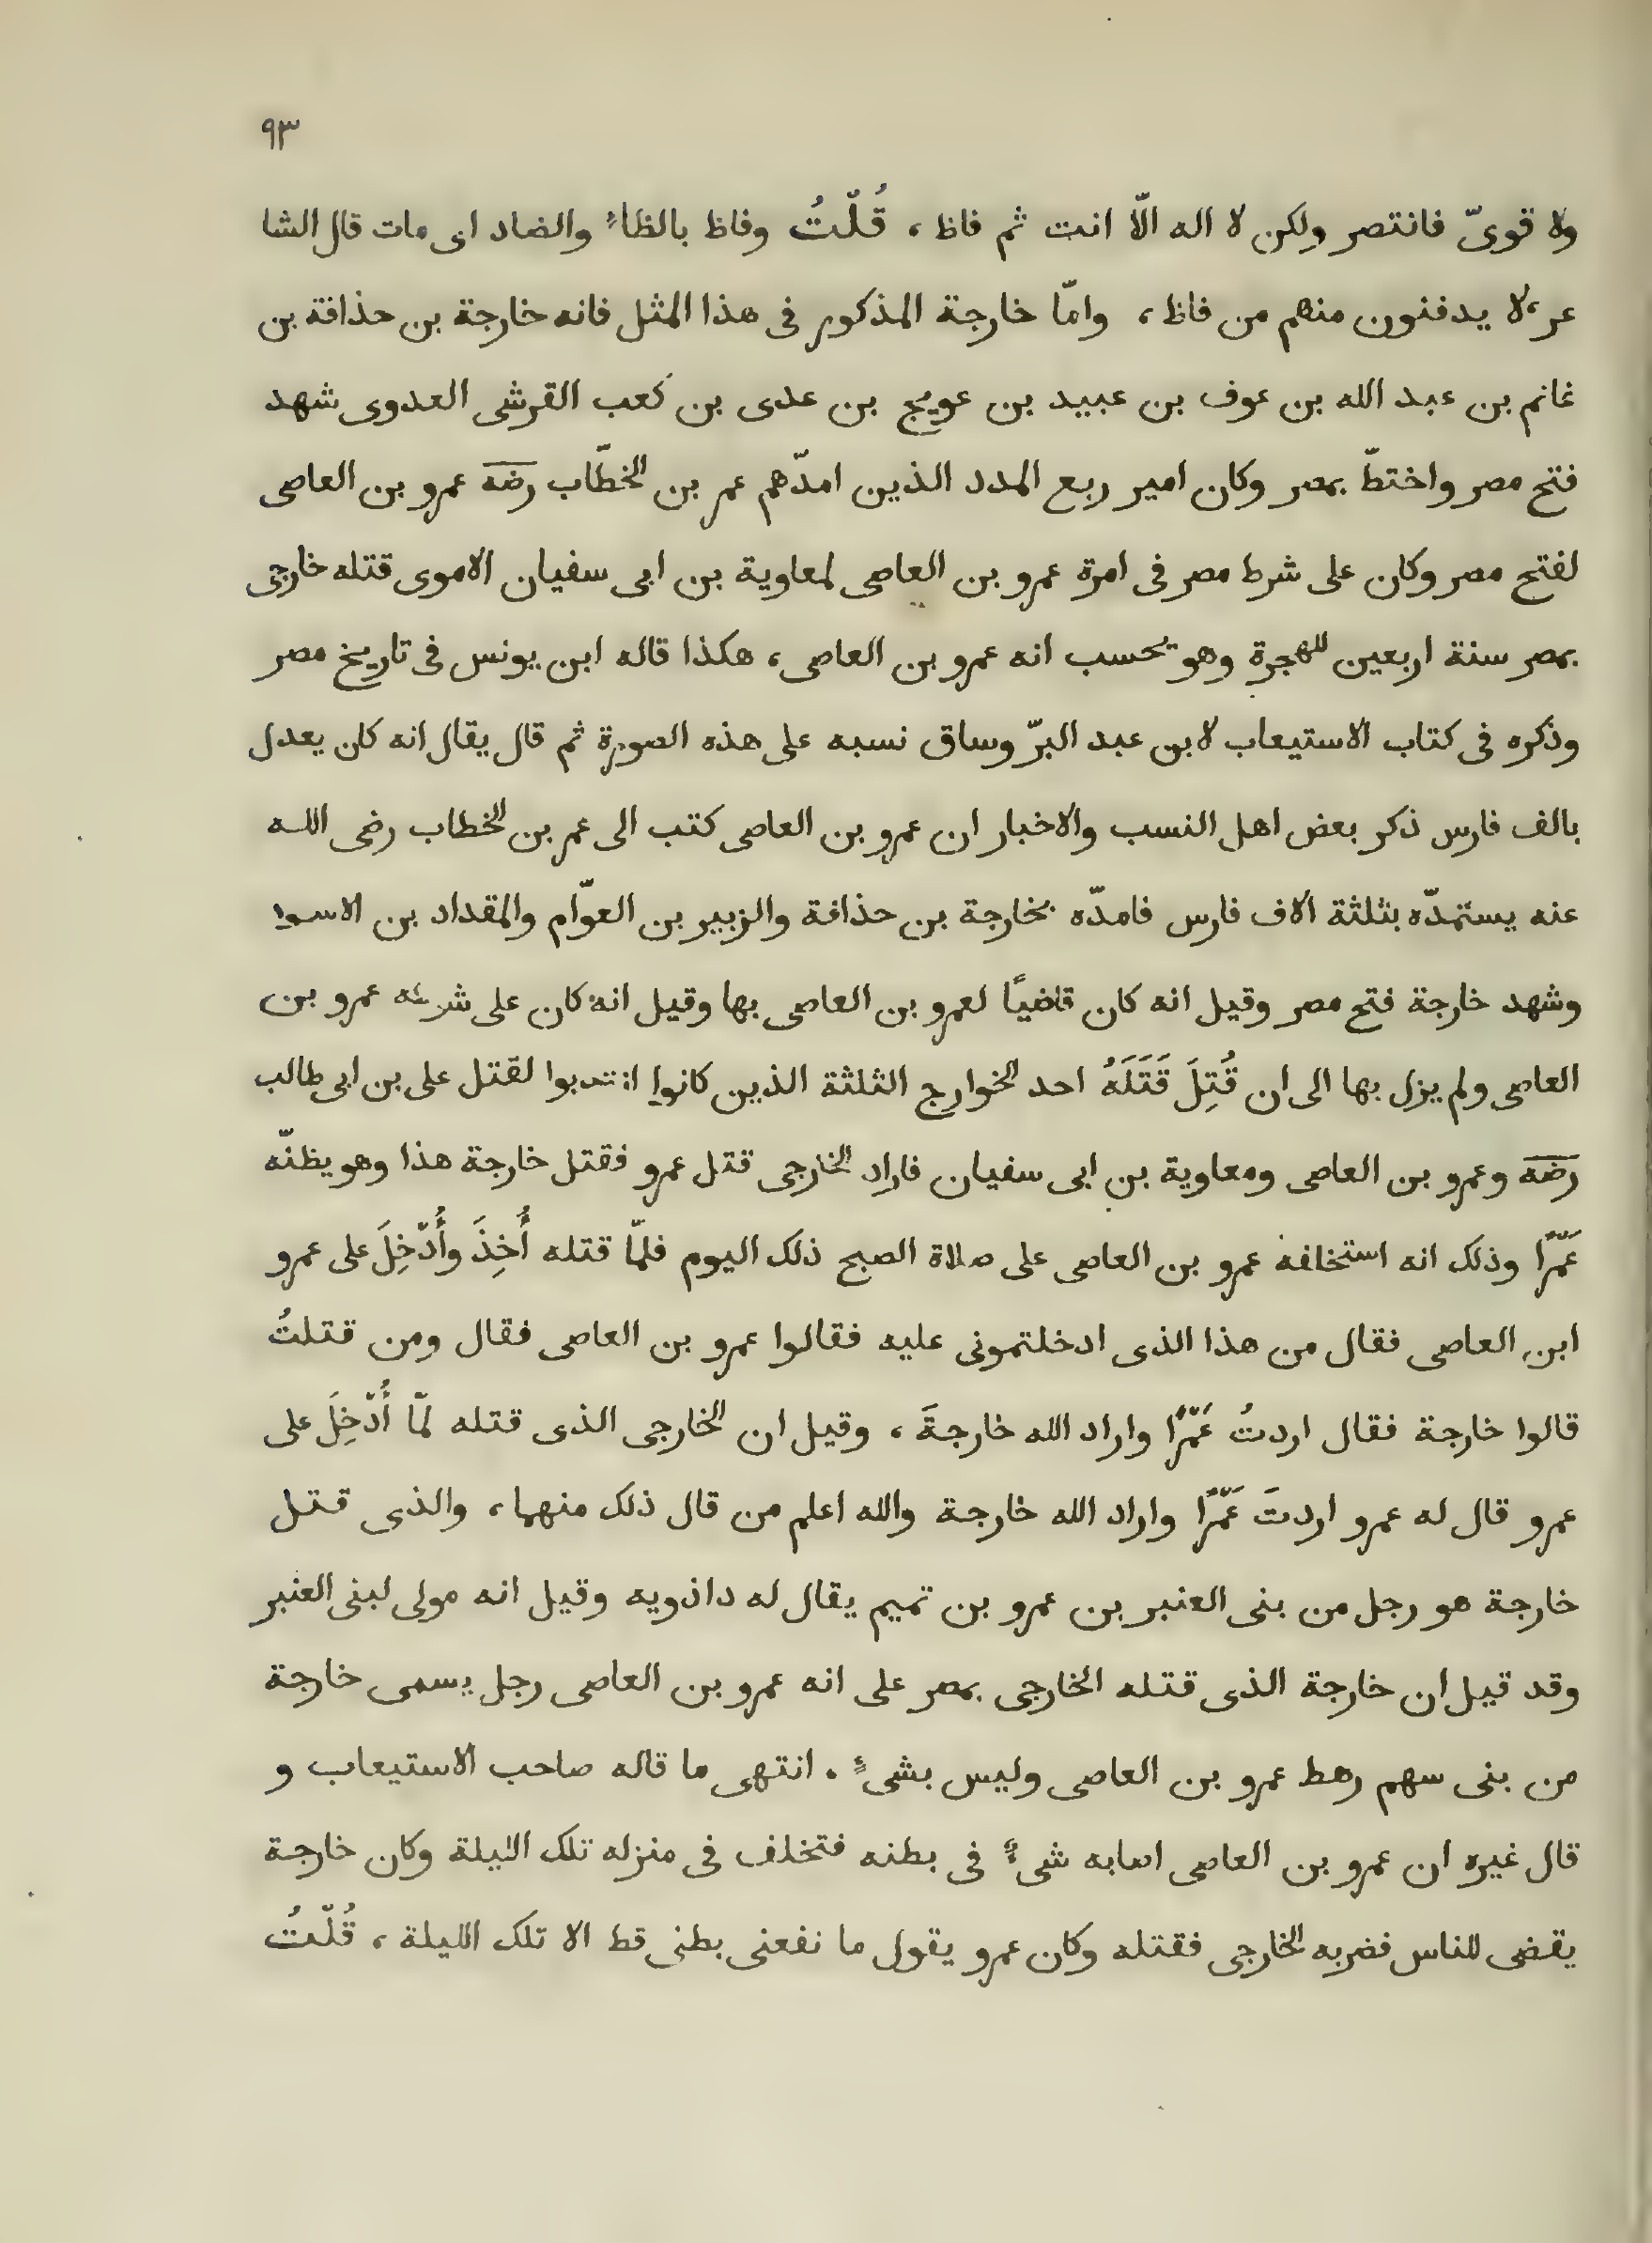 ٩٣
ولا قوىّ فانتصر ولكن لا اله الّا انت ثم فاظ، قُلْتُ وفاظ بالظاء والضاد اى مات قال الشا
عر، لا يدفنون منهم من فاظ، وامّا خارجة المذكور فى هذا المثل فانه خارجة بن حذافة بن
غانم بن عبد الله بن عوف بن عبيد بن عويج بن عدى بن كعب القرشى العدوى شهد
فتح مصر واختطّ بمصر وكان امير ربع المدد الذين امدّهم عمر بن الخطّاب رضه عمرو بن العاصى
لفتح مصر وكان على شرط مصر فى امرة عمرو بن العاصى لمعاوية بن ابى سفيان الاموى قتله خارجى
بمصر سنة اربعين للهجرة وهو يحسب انه عمرو بن العاصى، هكذا قاله ابن يونس فى تاريخ مصر
وذكره فى كتاب الاستيعاب لابن عبد البرّ وساق نسبه على هذه الصورة ثم قال يقال انه كان يعدل
بالف فارس ذكر بعض اهل النسب والاخبار ان عمرو بن العاصى كتب الى عمر بن الخطاب رضى الله
عنه يستمدّه بثلثة الاف فارس فامدّه بخارجة بن حذافة والزبير بن العوّام والمقداد بن الاسود
وشهد خارجة فتح مصر وقيل انه كان قاضيًا لعمرو بن العاصى بها وقيل انه كان على شرطه عمرو بن
العاصى ولم يزل بها الى ان قُتِلَ قَتَلَهُ احد الخوارج الثلثة الذين كانوا انتدبوا لقتل على بن ابى طالب
رضه وعمرو بن العاصى ومعاوية بن ابى سفيان فاراد الخارجى قتل عمرو فقتل خارجة هذا وهو يظنّه
عَمْرًا وذلك انه استخلفه عمرو بن العاصى على صلاة الصبح ذلك اليوم فلمّا قتله أُخِذَ وأُدْخِلَ على عمرو
ابن العاصى فقال من هذا الذى ادخلتمونى عليه فقالوا عمرو بن العاصى فقال ومن قتلتُ
قالوا خارجة فقال اردتُ عَمْرًا واراد الله خارجةَ، وقيل ان الخارجى الذى قتله لمّا أُدْخِلَ على
عمرو قال له عمرو اردتَ عَمْرًا واراد الله خارجة والله اعلم من قال ذلك منهما، والذى قتل
خارجة هو رجل من بنى العنبر بن عمرو بن تميم يقال له داذويه وقيل انه مولى لبنى العنبر
وقد قيل ان خارجة الذى قتله الخارجى بمصر على انه عمرو بن العاصى رجل يسمى خارجة
من بنى سهم رهط عمرو بن العاصى وليس بشىءٍ. انتهى ما قاله صاحب الاستيعاب و
قال غيره ان عمرو بن العاصى اصابه شىءٌ فى بطنه فتخلف فى منزله تلك الليلة وكان خارجة
يقضى للناس فضربه الخارجى فقتله وكان عمرو يقول ما نفعنى بطنى قط الا تلك الليلة، قُلْتُ